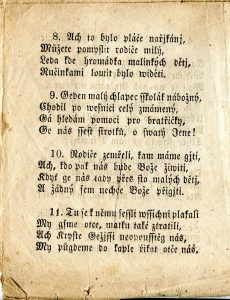 8. Ach to bylo pláče nařjkánj,
Můžete pomyslit rodiče milý,
Leda kde hromádka malinkých dětj,
Ručinkami lomit bylo widěti.
9. Geden malý chlapec sskolák nábožný,
Chodil po wesnici celý zmámený,
Gá hledám pomoci pro bratřičky,
Ge nás ssest sirotků, o swatý Jene!
10. Rodiče zemřeli, kam máme gjti,
Ach, kdo pak nás bude Bože žiwiti,
Když ge nás tady přes sto malých dětj,
A žádný sem nechce Bože přigjti.
11. Tu se k němu sessli wssichni plakali
My gsme otce, matku také ztratili,
Ach Kryste Gežjssi neopausstěg nás,
My půgdeme do kaple řikat otče nás.